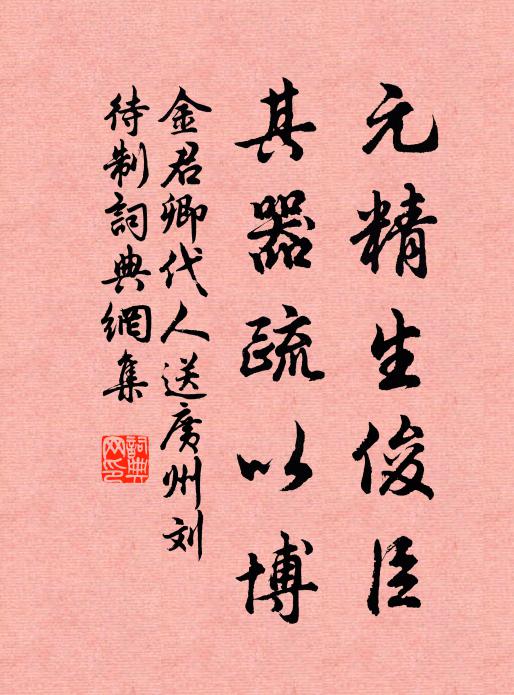 元精生俊臣
其器疏以博
金君卿代人送广州刘
待制詞典網集
詞典网印